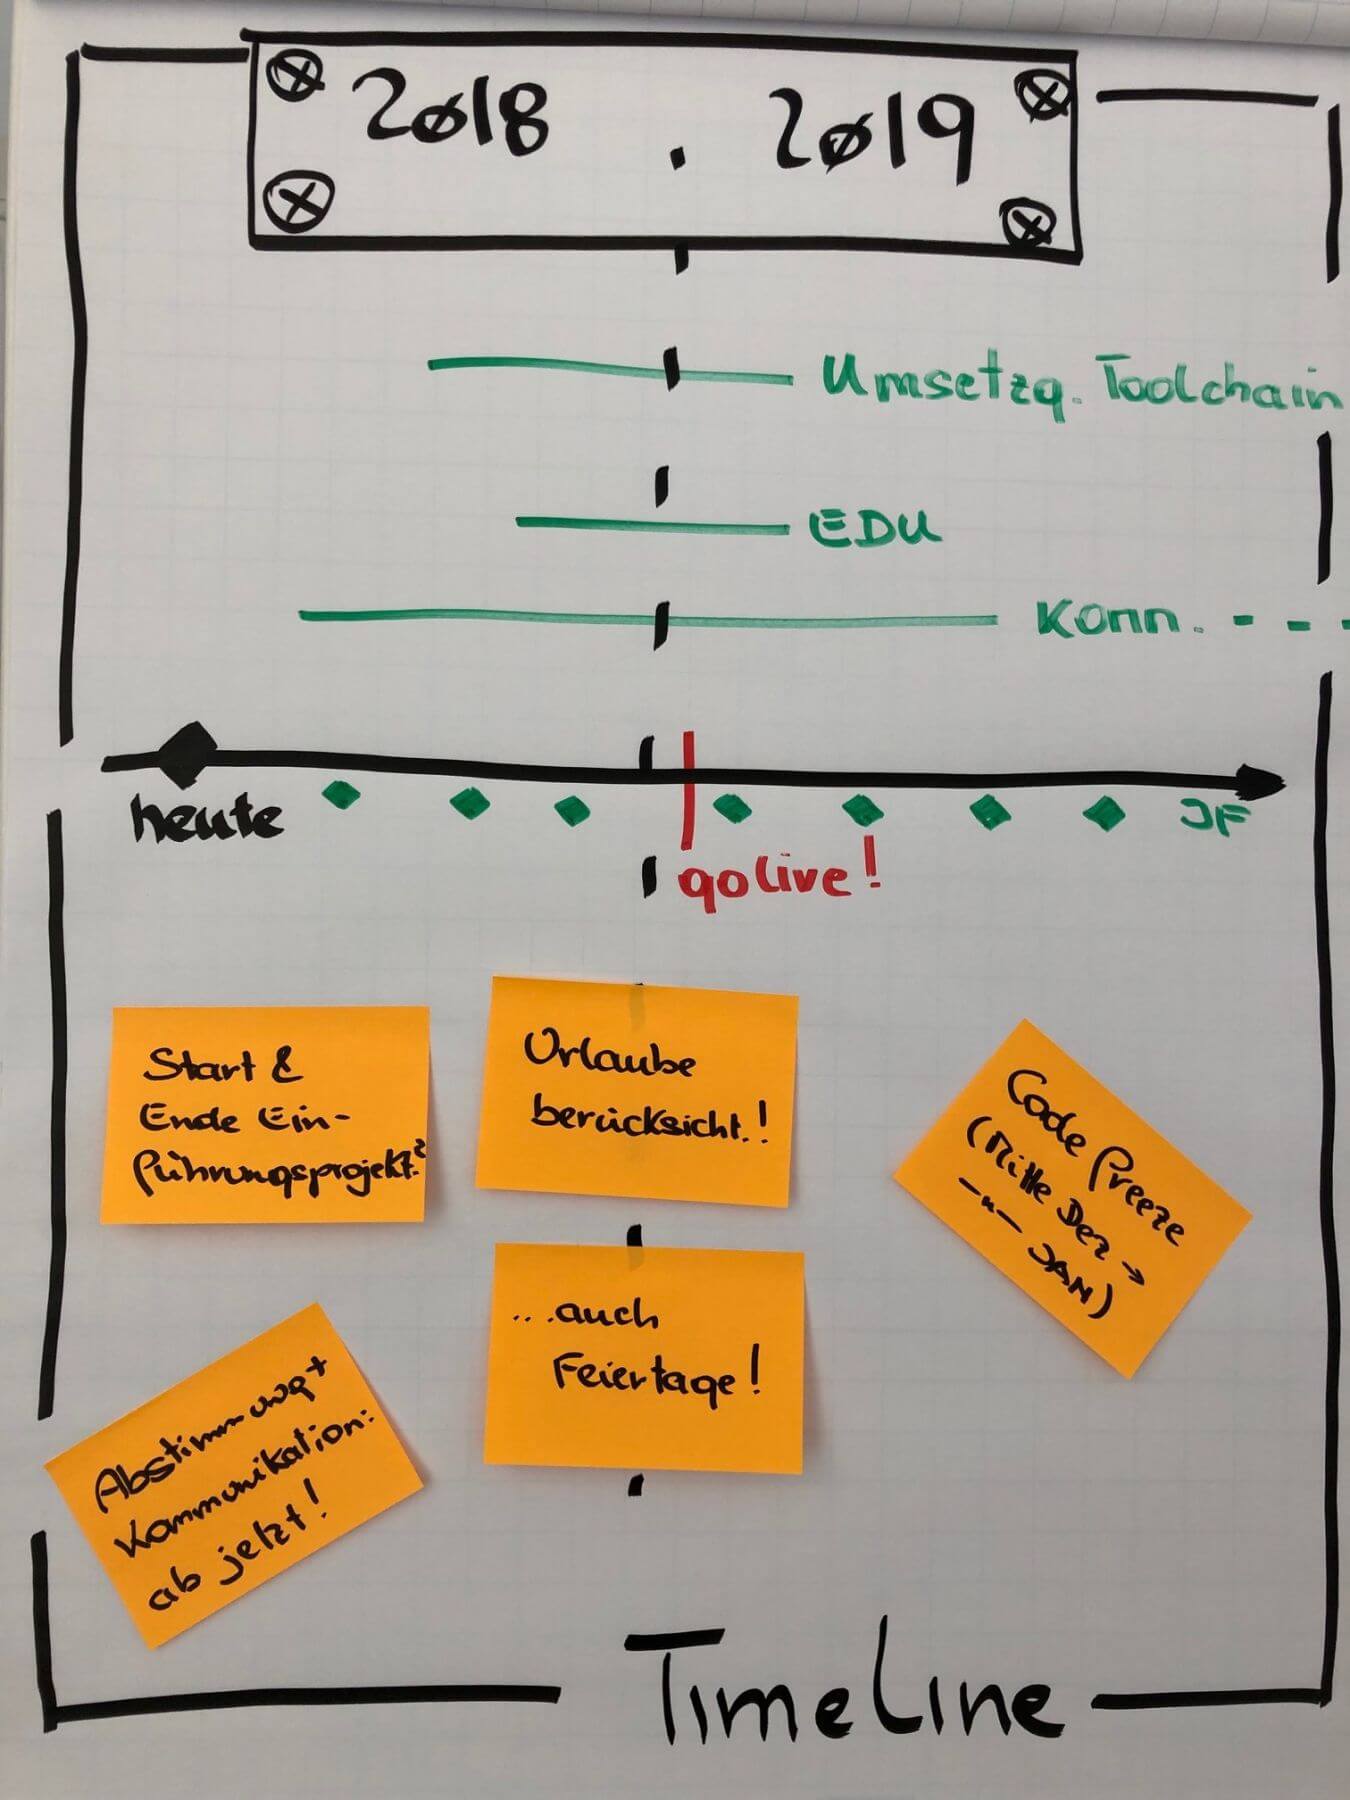 2018 . 2019
Umsetzg. Toolchain
EDU
Komm. - - -
heute
JF
golive!
Start &
Ende Ein-
führungsprojekt?
Urlaube
berücksicht.!
Code freeze
(Mitte Dez →
-"- JAN)
...auch
Feiertage!
Abstimmung +
Kommunikation:
ab jetzt!
TimeLine